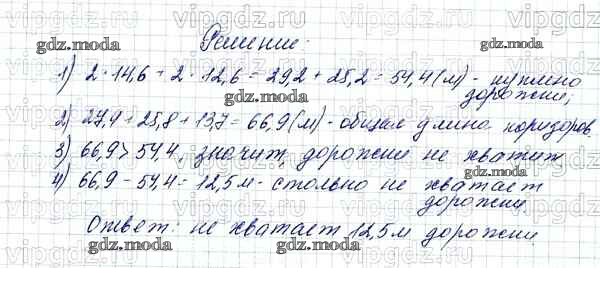 Решение:
1) 2·14,6 + 2·12,6 = 29,2 + 25,2 = 54,4 (м) - нужно
дорожки;
2) 27,4 + 25,8 + 13,7 = 66,9 (м) - общая длина коридоров
3) 66,9 > 54,4, значит, дорожки не хватит
4) 66,9 - 54,4 = 12,5 м - столько не хватает
дорожки.
Ответ: не хватает 12,5 м дорожки.
gdz.moda
gdz.moda
gdz.moda
gdz.moda
gdz.moda
gdz.moda
vipgdz.ru
vipgdz.ru
vipgdz.ru